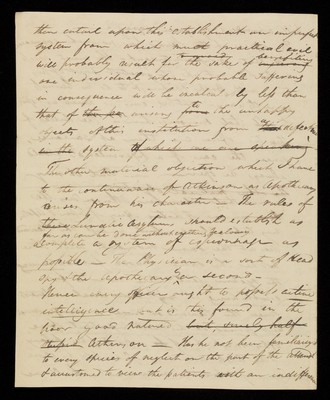 them entail upon this establishment an imperfect
system from which much practical evil
will probably result for the sake of benefiting
one individual whose probable sufferings
in consequence will be greatly less than
that of the arising to the unhappy
objects of this institution from defects
in the system of which we are speaking
The other material objection which I have
to the continuance of Atkinson as Apothecary
arises from his character — The rules of
the Lunatic Asylum should establish as
far as can be done without exciting jealousy
complete a system of espionage as
possible — The Physician is a sort of Head
spy & the apothecary a second —
Hence every officer ought to possess entire
intelligence & is this found in the
poor good natured but, surely half
Atkinson — Has he not been familiarized
to every species of neglect on the part of the
& accustomed to view the patients with an indifferen